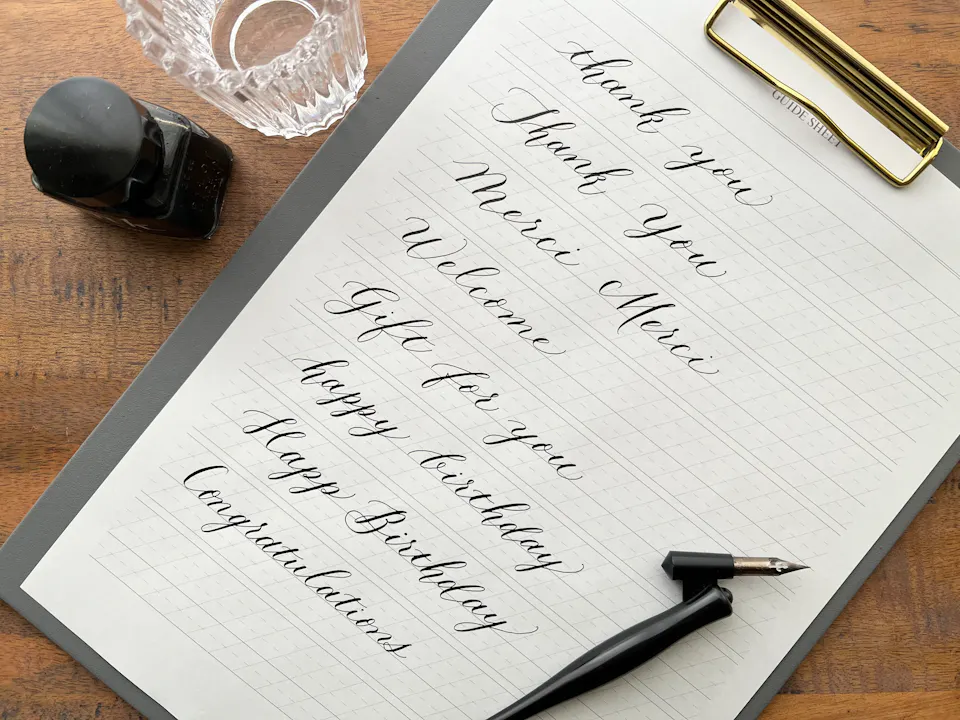 GUIDE SHEET
thank you
Thank You
Merci Merci
Welcome
Gift for you
happy birthday
Happy Birthday
Congratulations